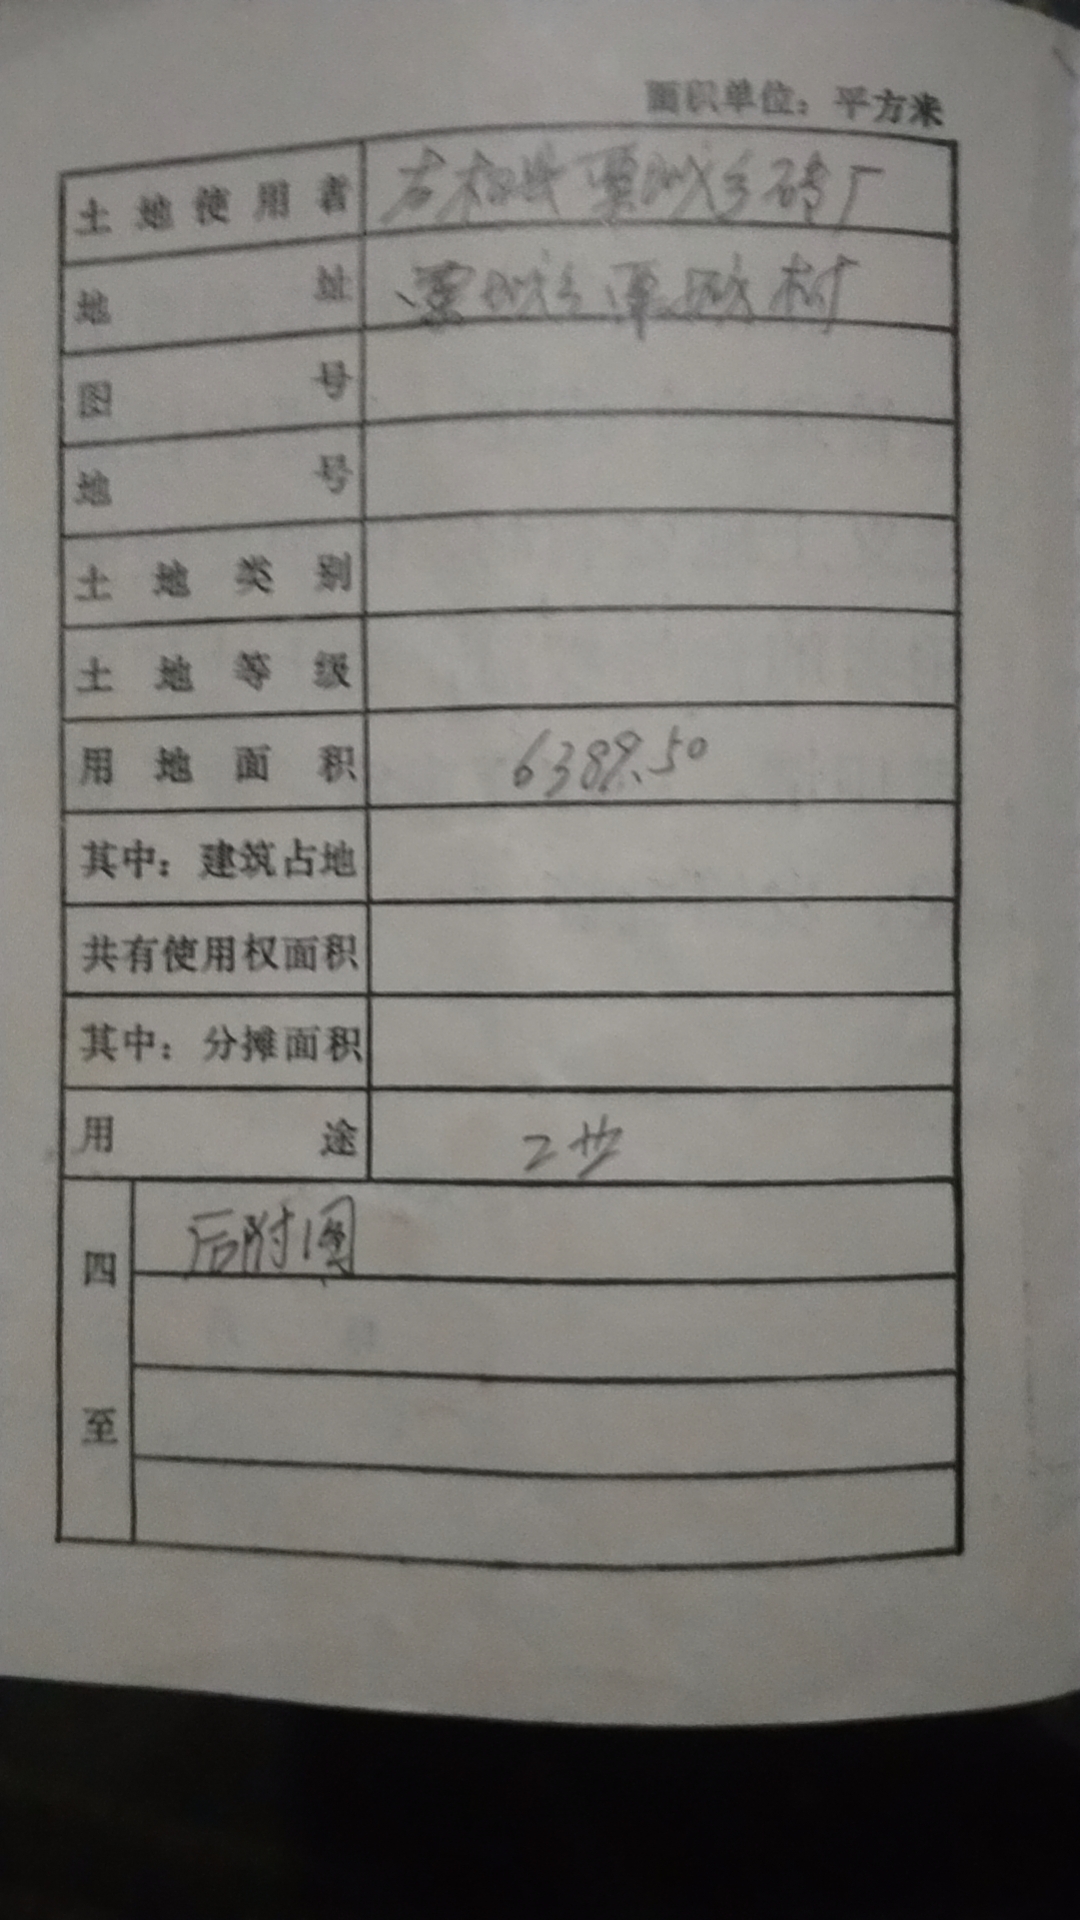 面积单位：平方米
土地使用者 左权县粟城乡砖厂
地址 粟城乡粟城村
图号
地号
土地类别
土地等级
用地面积 6389.50
其中：建筑占地
共有使用权面积
其中：分摊面积
用途 工业
四至 后附图